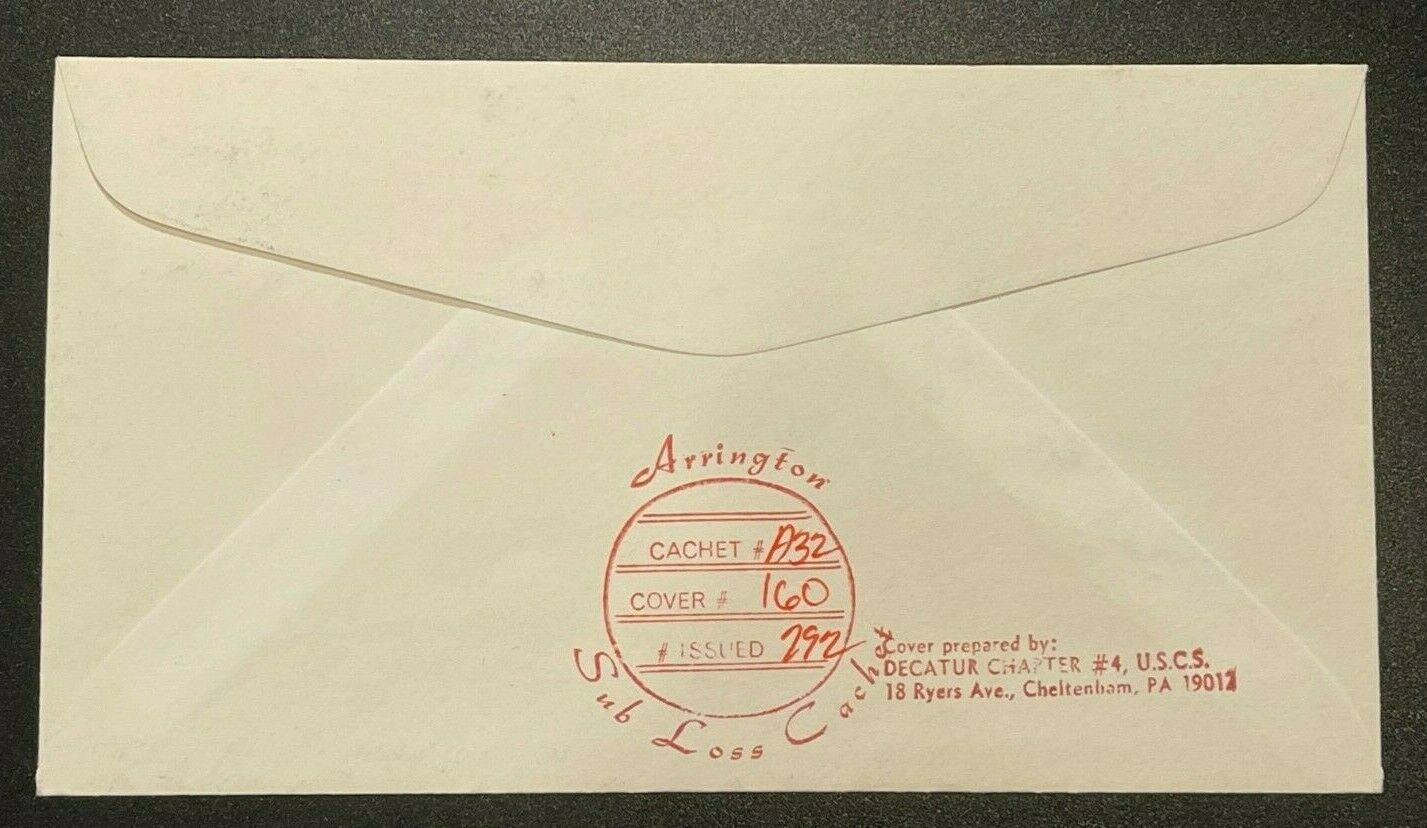 Arrington
CACHET # A32
COVER # 160
# ISSUED 292
Sub Loss Cachet
Cover prepared by:
DECATUR CHAPTER #4, U.S.C.S.
18 Ryers Ave., Cheltenham, PA 19012